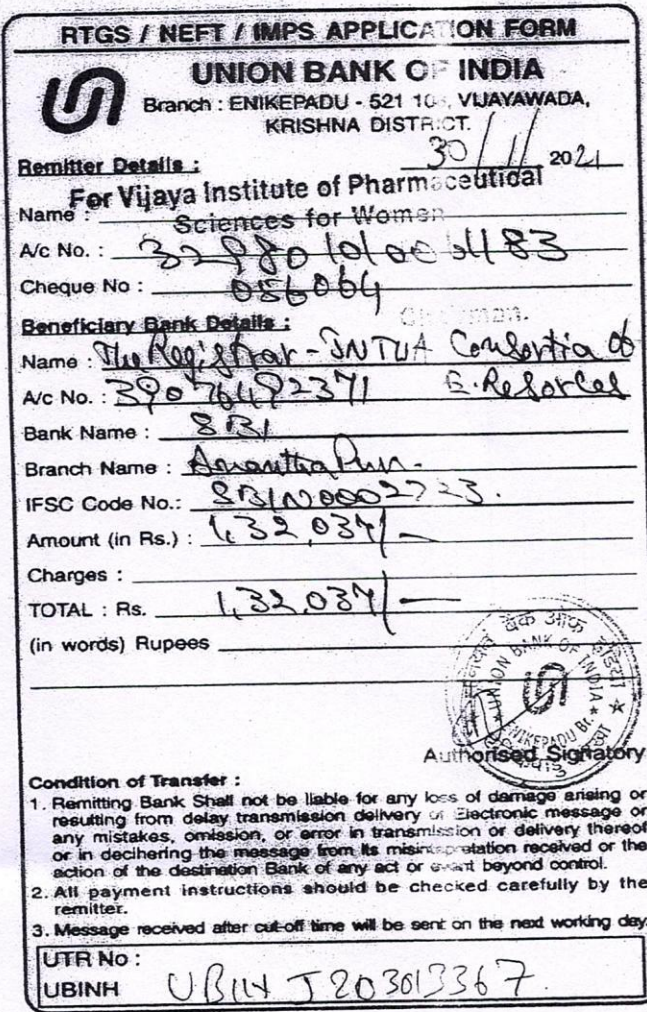 RTGS / NEFT / IMPS APPLICATION FORM
UNION BANK OF INDIA
Branch : ENIKEPADU - 521 108, VIJAYAWADA,
KRISHNA DISTRICT.
30/11/2021
Remitter Details :
For Vijaya Institute of Pharmaceutical
Name : Sciences for Women
A/c No. :
Cheque No : 056064
Chairman.
Beneficiary Bank Details :
Name : The Registrar - JNTUA Consortia of
A/c No. : 39076492371 E. Resorces
Bank Name : SBI
Branch Name : Ananthapur.
IFSC Code No.: SBIN0002723.
Amount (in Rs.) : 1,32,037/-
Charges :
TOTAL : Rs. 1,32,037/-
(in words) Rupees
यूनियन बैंक ऑफ इंडिया
UNION BANK OF INDIA
ENIKEPADU Br.
Authorised Signatory
Condition of Transfer :
1. Remitting Bank Shall not be liable for any loss of damage arising or
resulting from delay transmission delivery of Electronic message or
any mistakes, omission, or error in transmission or delivery thereof
or in decihering the message from its misinterpretation received or the
action of the destination Bank of any act or event beyond control.
2. All payment instructions should be checked carefully by the
remitter.
3. Message received after cut-off time will be sent on the next working day.
UTR No :
UBINH UBINJ203013367.